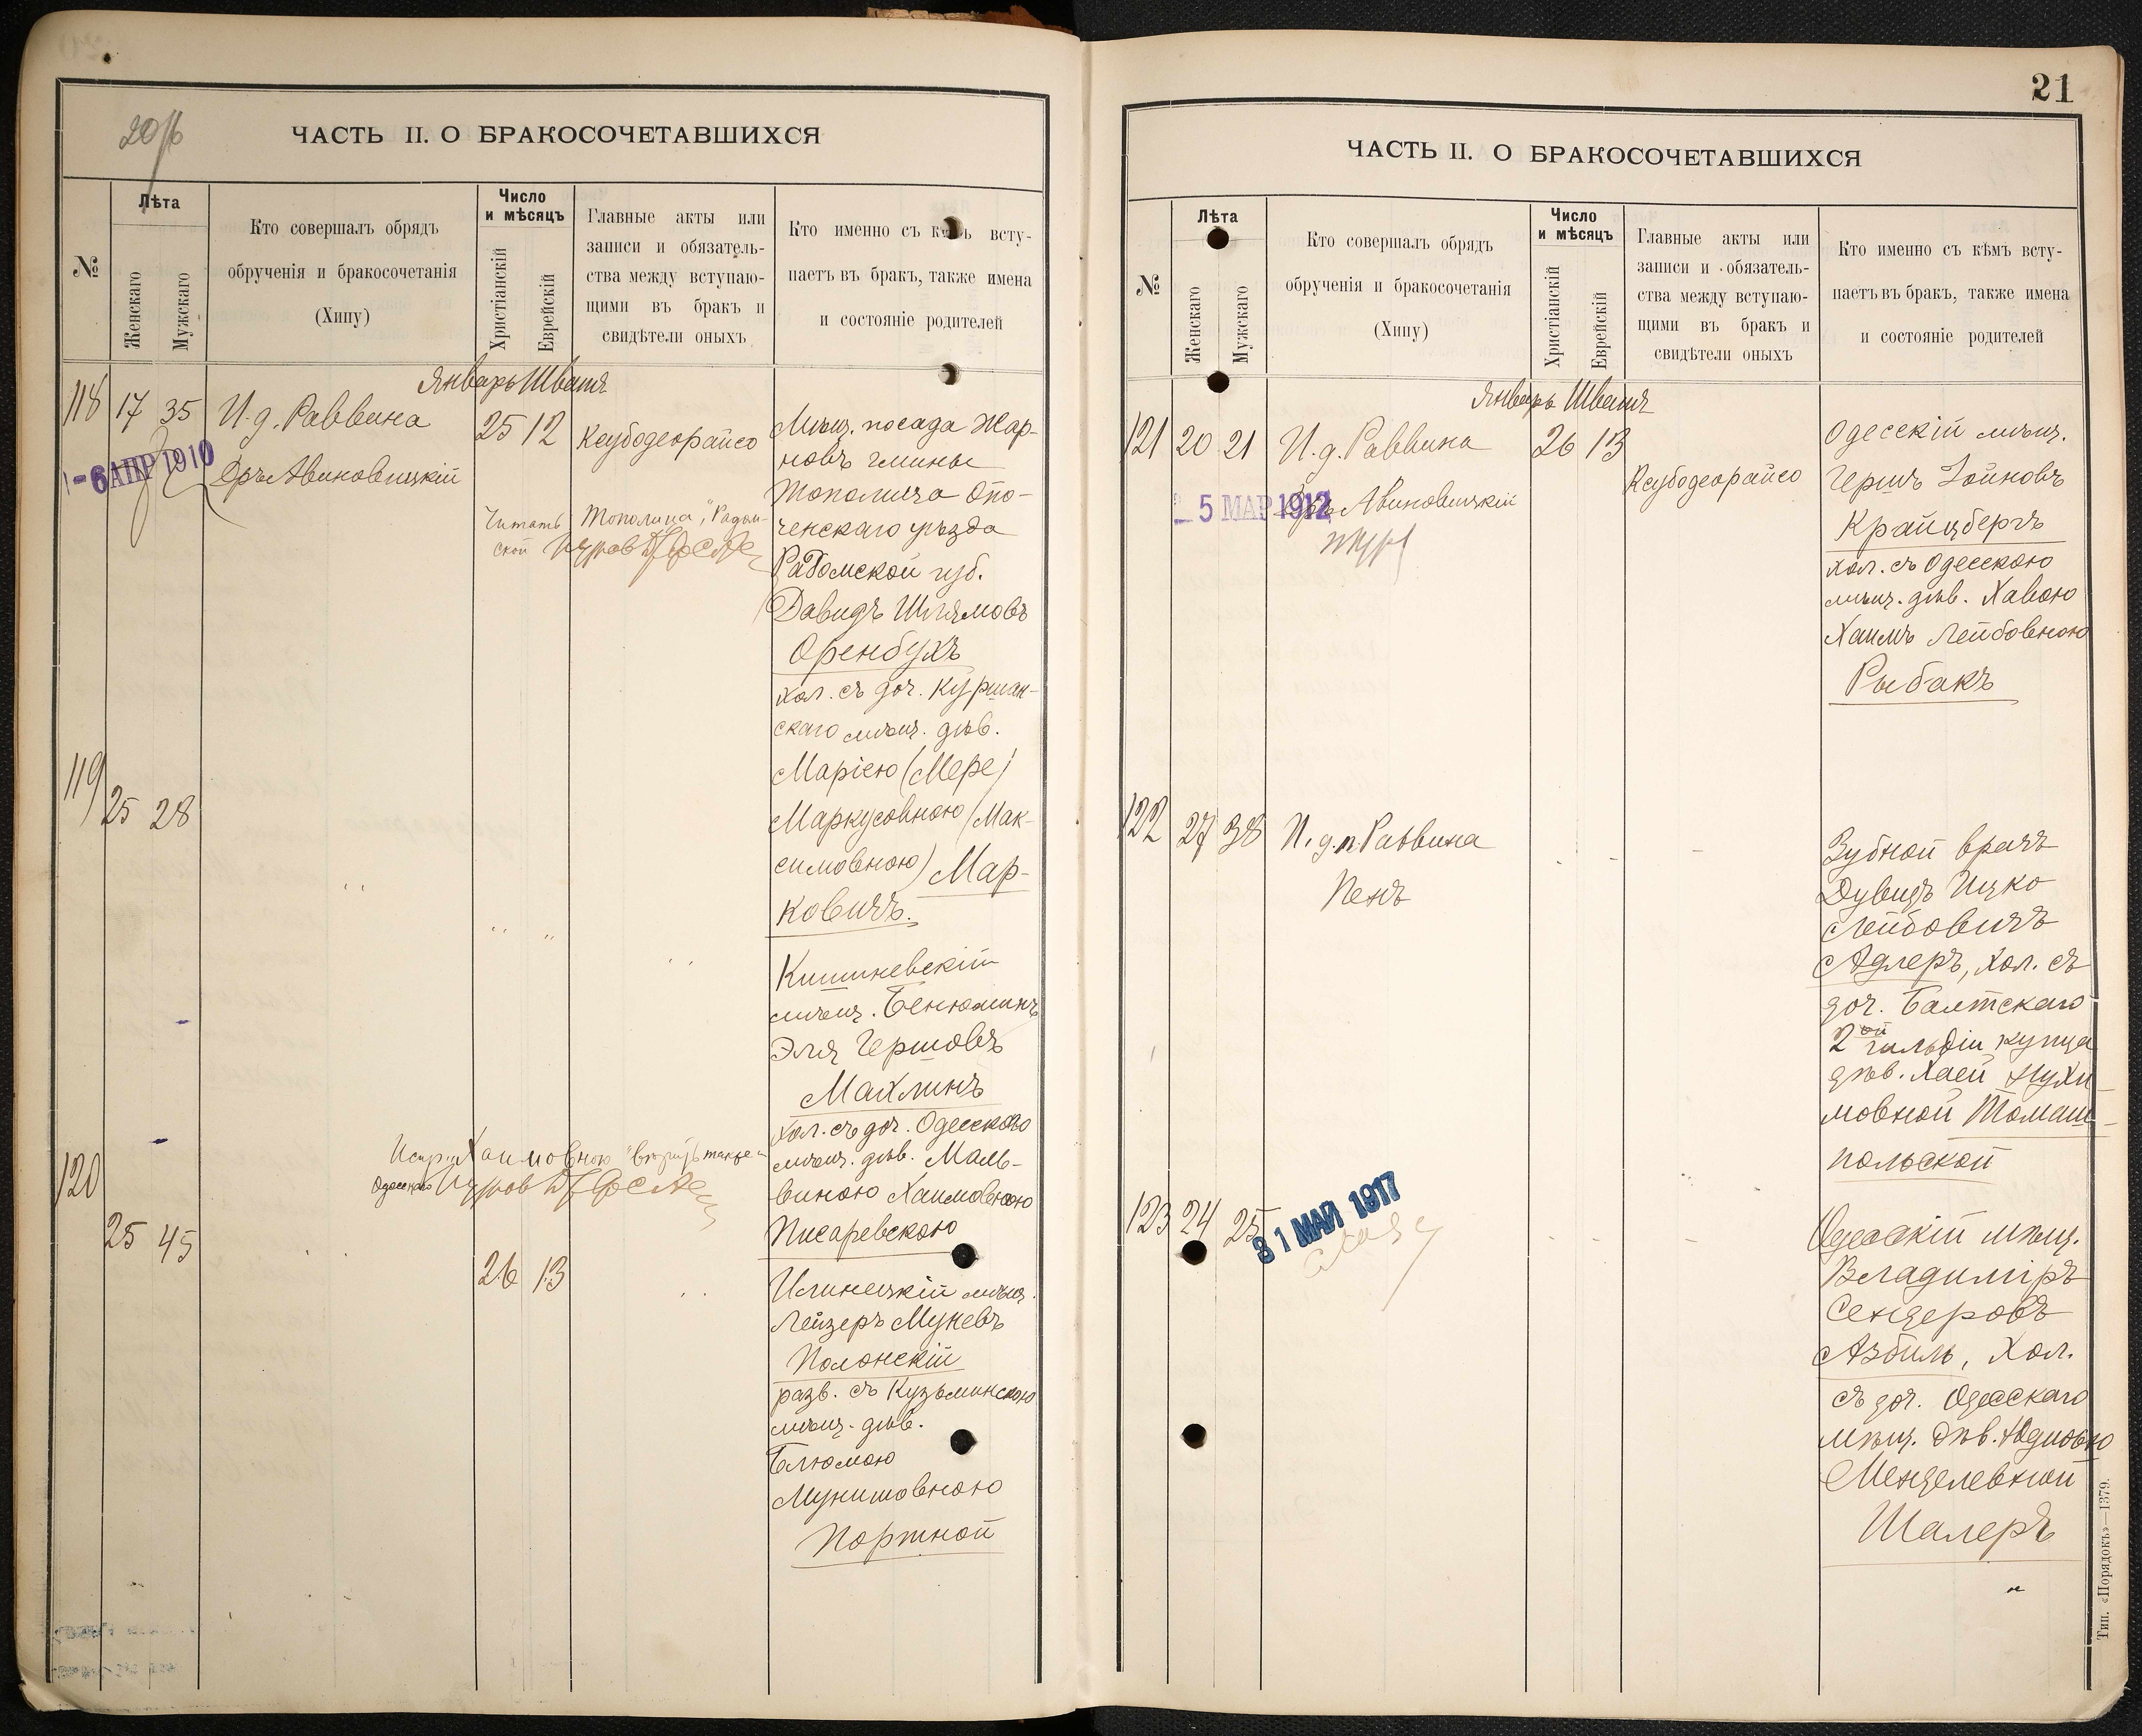 20/б
ЧАСТЬ II. О БРАКОСОЧЕТАВШИХСЯ
№
Лѣта
Женскаго
Мужскаго
Кто совершалъ обрядъ
обрученія и бракосочетанія
(Хипу)
Число
и мѣсяцъ
Христіанскій
Еврейскій
Главные акты или
записи и обязатель-
ства между вступаю-
щими въ бракъ и
свидѣтели оныхъ
Кто именно съ кѣмъ всту-
паетъ въ бракъ, также имена
и состояніе родителей
Январь Шватъ
118 17 35 И.д. Раввина 25 12 Ксубодеорайсо
6 АПР 1910
Авиновицкій
Читать "Тополица", "Радом-
ской
Мѣщ. посада Жар-
новъ гмины
Тополица Опо-
ченскаго уѣзда
Радомской губ.
Давидъ Шлямовъ
Оренбухъ
хол. съ доч.
скаго мѣщ. дѣв.
Маріею (Мере)
Маркусовною (Мак-
симовною) Мар-
ковичъ.
119 25 28
Кишиневскій
мѣщ. Бенюминъ
Эля Гершовъ
Махлинъ
хол. съ доч. Одесскаго
мѣщ. дѣв. Маль-
виною Хаимовною
Писаревскою
Испр. Хаимовною
Одесскаго
120 25 45 26 13
Илинецкій мѣщ.
Лейзеръ Муневъ
Полонскій
разв. съ Кузьминскою
мѣщ. дѣв.
Блюмою
Мунишовною
Портной
21
ЧАСТЬ II. О БРАКОСОЧЕТАВШИХСЯ
№
Лѣта
Женскаго
Мужскаго
Кто совершалъ обрядъ
обрученія и бракосочетанія
(Хипу)
Число
и мѣсяцъ
Христіанскій
Еврейскій
Главные акты или
записи и обязатель-
ства между вступаю-
щими въ бракъ и
свидѣтели оныхъ
Кто именно съ кѣмъ всту-
паетъ въ бракъ, также имена
и состояніе родителей
Январь Шватъ
121 20 21 И.д. Раввина 26 13 Ксубодеорайсо
5 МАР 1912
Авиновицкій
Одесскій мѣщ.
Гершъ Зойновъ
Крайцбергъ
хол. съ Одесскою
мѣщ. дѣв. Хавою
Хаимъ Лейбовною
Рыбакъ
122 27 38 И.д.п. Раввина
Пенъ
Зубной врачъ
Дувидъ Ицко
Лейбовичъ
Адлеръ, хол. съ
доч. Балтскаго
2ой гильдіи купца
дѣв. Хаей Нухи-
мовной Томаш-
польской
123 24 25
31 МАЙ 1917
Одесскій мѣщ.
Владиміръ
Сендеровъ
Азбиль, хол.
съ доч. Одесскаго
мѣщ. дѣв.
Менделевной
Шалеръ
Тип. «Порядокъ»—1379.